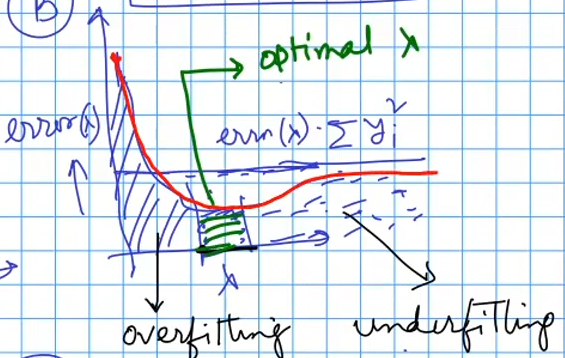 B
optimal λ
error(λ)
errn(λ) · Σ yᵢ²
λ
overfitting
underfitting